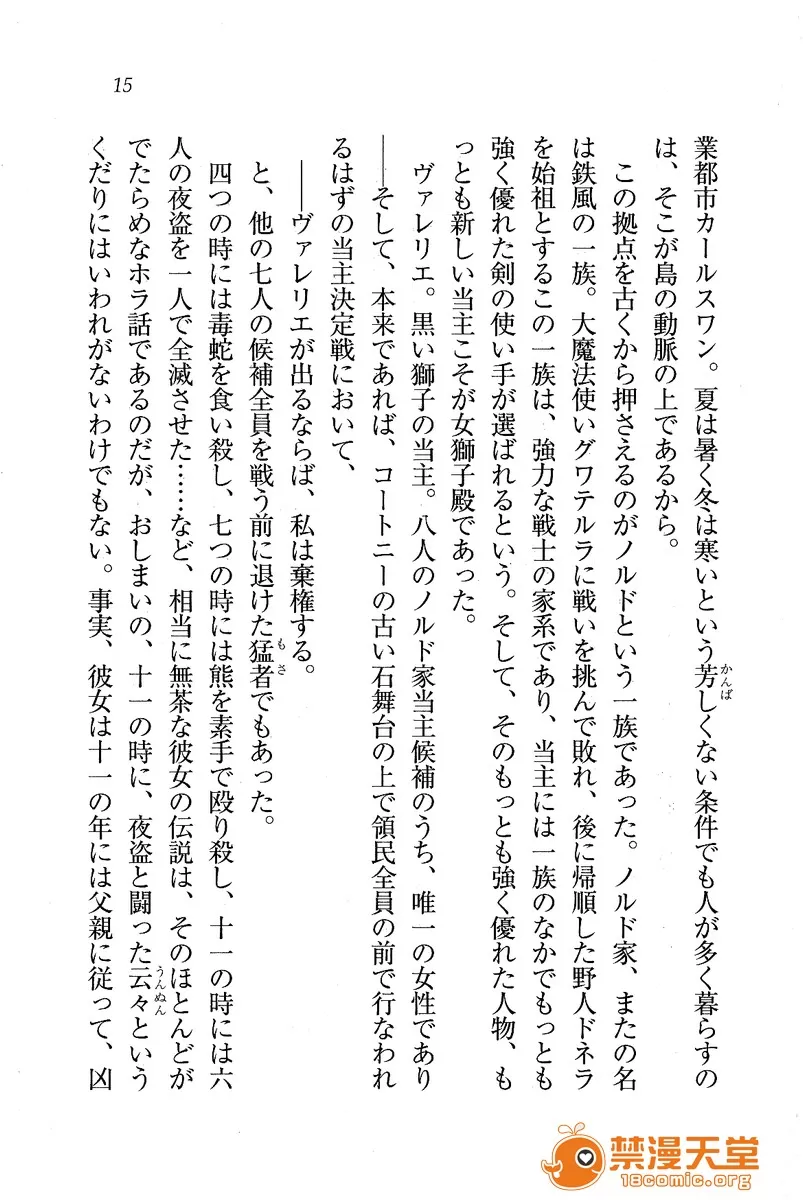 15
業都市カールスワン。夏は暑く冬は寒いという芳しくない条件でも人が多く暮らすの
かんば
は、そこが島の動脈の上であるから。
この拠点を古くから押さえるのがノルドという一族であった。ノルド家、またの名
は鉄風の一族。大魔法使いグワテルラに戦いを挑んで敗れ、後に帰順した野人ドネラ
を始祖とするこの一族は、強力な戦士の家系であり、当主には一族のなかでもっとも
強く優れた剣の使い手が選ばれるという。そして、そのもっとも強く優れた人物、も
っとも新しい当主こそが女獅子殿であった。
ヴァレリエ。黒い獅子の当主。八人のノルド家当主候補のうち、唯一の女性であり
――そして、本来であれば、コートニーの古い石舞台の上で領民全員の前で行なわれ
るはずの当主決定戦において、
――ヴァレリエが出るならば、私は棄権する。
と、他の七人の候補全員を戦う前に退けた猛者でもあった。
もさ
四つの時には毒蛇を食い殺し、七つの時には熊を素手で殴り殺し、十一の時には六
人の夜盗を一人で全滅させた……など、相当に無茶な彼女の伝説は、そのほとんどが
でたらめなホラ話であるのだが、おしまいの、十一の時に、夜盗と闘った云々という
うんぬん
くだりにはいわれがないわけでもない。事実、彼女は十一の年には父親に従って、凶
禁漫天堂
18comic.org